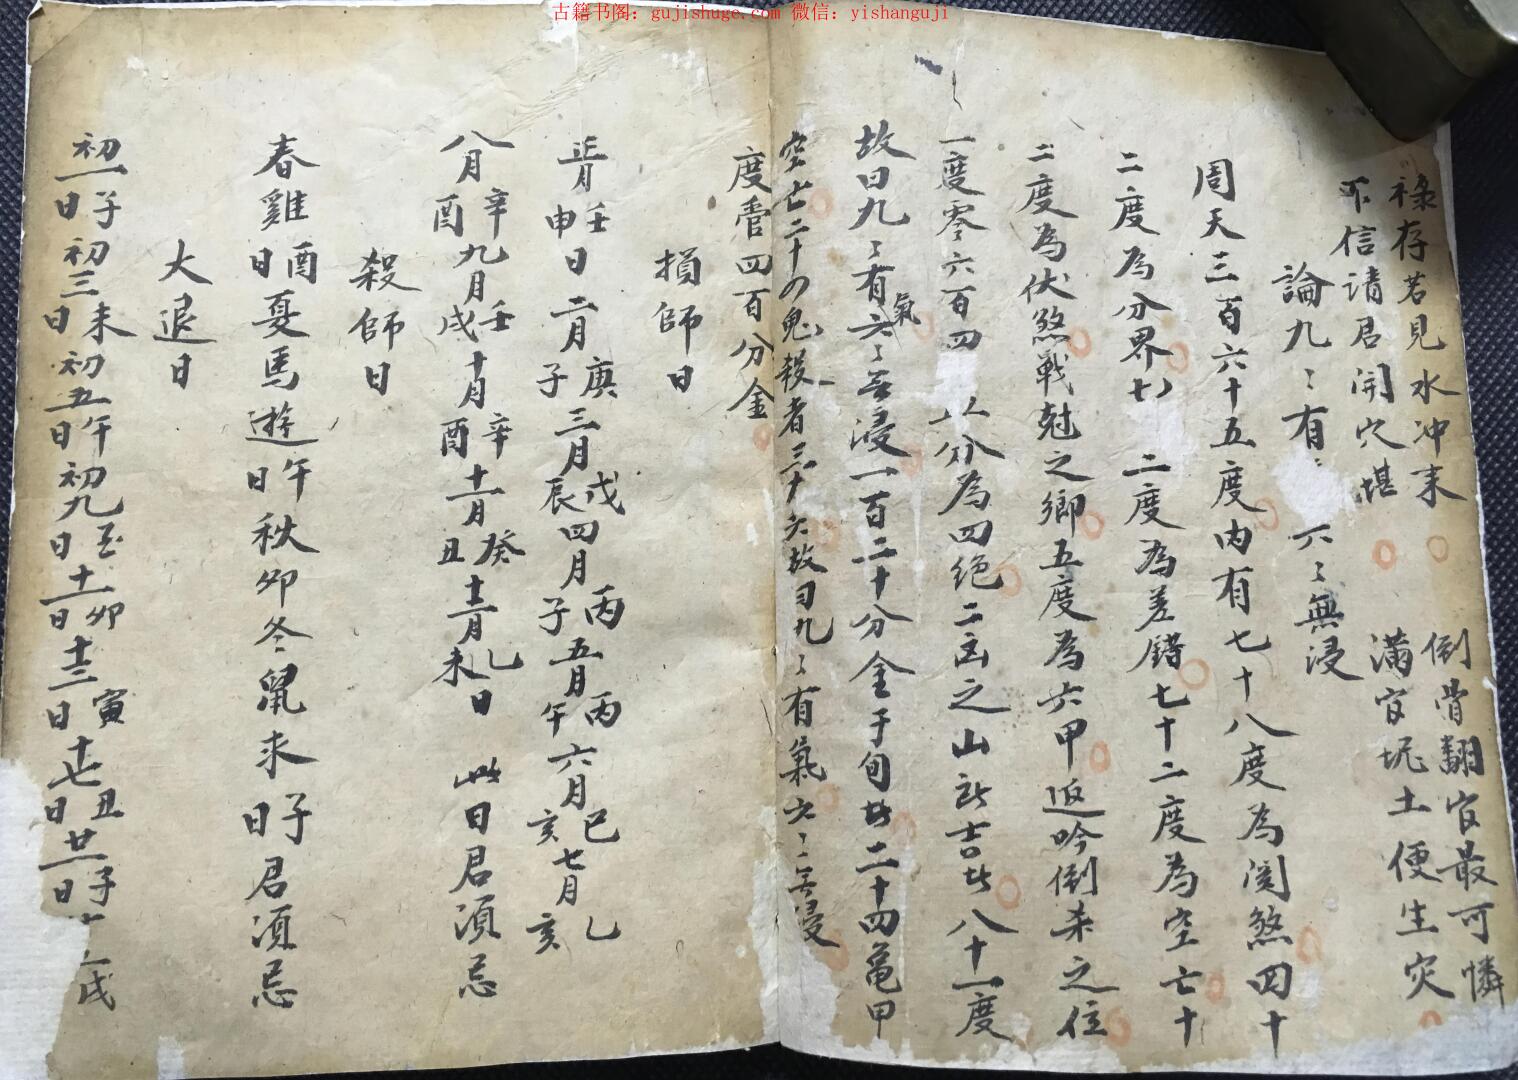 古籍书阁：gujishuge.com 微信：yishanguji
祿存若見水冲来 倒骨翻官最可憐
不信請君開穴堪 滿官坭土便生灾
論九〻有 六〻無浸
周天三百六十五度内有七十八度為関煞四十
二度為分界七八 二度為差錯七十二度為空亡十
二度為伏煞戰尅之鄉五度為六甲返吟倒杀之位
一度零六百四 以分為四绝二凶之山 吉 八十一度
故曰九〻有氣六〻無浸一百二十分金于旬 二十四龜甲
空亡二十四鬼殺者三十六故曰九〻有氣六〻無浸
度管四百分金
損師日
正月壬申日二月庚子三月戊辰四月丙子五月丙午六月巳亥七月乙亥
八月辛酉九月壬戌十月辛酉十一月癸丑十二月乙未日 此日君須忌
殺師日
春雞酉日夏馬遊午日秋卯冬鼠来子日君須忌
大退日
初一日子初三日未初五日午初九日 十一日卯十三日寅十七日丑廿一日子 戌